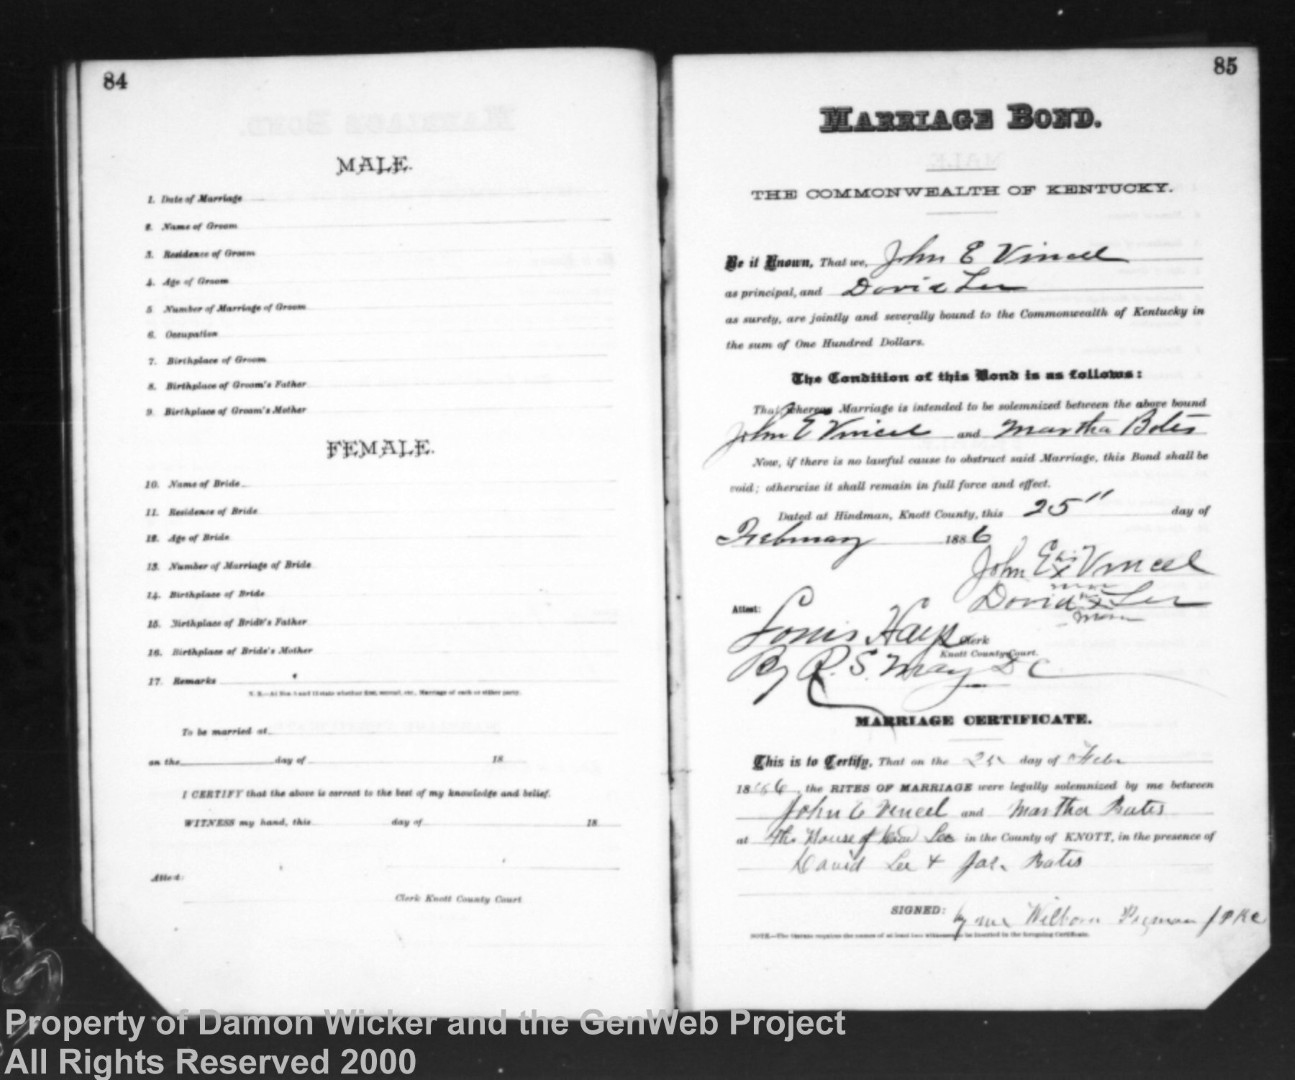 84
MALE.
1. Date of Marriage
2. Name of Groom
3. Residence of Groom
4. Age of Groom
5. Number of Marriage of Groom
6. Occupation
7. Birthplace of Groom
8. Birthplace of Groom's Father
9. Birthplace of Groom's Mother
FEMALE.
10. Name of Bride
11. Residence of Bride
12. Age of Bride
13. Number of Marriage of Bride
14. Birthplace of Bride
15. Birthplace of Bride's Father
16. Birthplace of Bride's Mother
17. Remarks
N. B.—At Nos. 5 and 13 state whether first, second, etc., Marriage of each or either party.
To be married at
on the day of 18
I CERTIFY that the above is correct to the best of my knowledge and belief.
WITNESS my hand, this day of 18
Attest:
Clerk Knott County Court
85
MARRIAGE BOND.
THE COMMONWEALTH OF KENTUCKY.
Be it Known, That we, John E Vincel
as principal, and David Lee
as surety, are jointly and severally bound to the Commonwealth of Kentucky in
the sum of One Hundred Dollars.
The Condition of this Bond is as follows:
That whereas Marriage is intended to be solemnized between the above bound
John E Vincel and Martha Bates
Now, if there is no lawful cause to obstruct said Marriage, this Bond shall be
void; otherwise it shall remain in full force and effect.
Dated at Hindman, Knott County, this 25" day of
February 1886
John E his x Vincel
mark
David his x Lee
Attest:
Louis Hays Clerk
Knott County Court.
By R. S. May D C
MARRIAGE CERTIFICATE.
This is to Certify, That on the day of Feb
1886, the RITES OF MARRIAGE were legally solemnized by me between
John E Vincel and Martha Bates
at The House of Lee in the County of KNOTT, in the presence of
David Lee + Jas. Bates
SIGNED: by me Wilborn J P K C
NOTE—The Statute requires the names of at least two witnesses to be inserted in the foregoing Certificate.
Property of Damon Wicker and the GenWeb Project
All Rights Reserved 2000